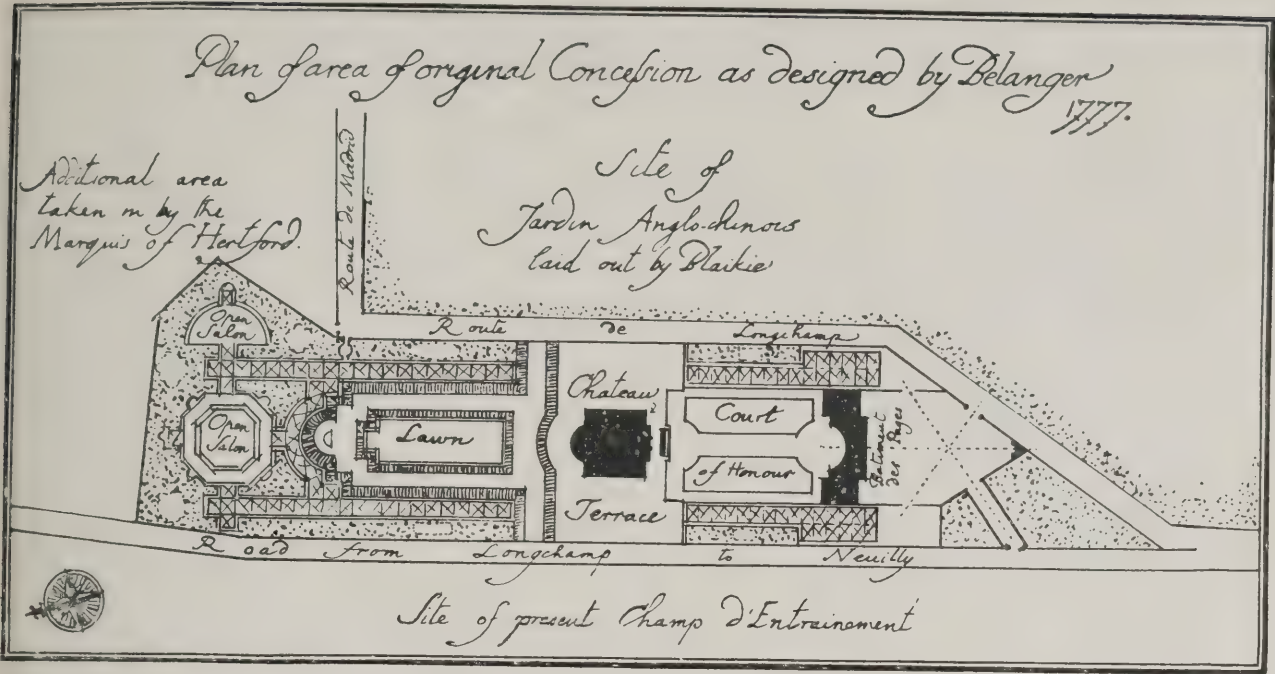 Plan of area of original Concession as designed by Belanger
1777.
Additional area
taken in by the
Marquis of Hertford.
Route de Madrid
Site of
Jardin Anglo-chinois
laid out by Blaikie
Route de Longchamp
Open
Salon
Open
Salon
Lawn
Chateau
Terrace
Court
of Honour
Batiment
des Pages
Road from Longchamp to Neuilly
Site of present Champ d'Entrainement